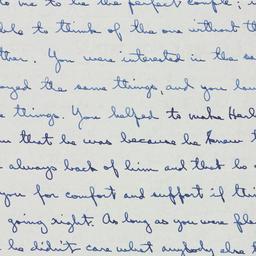 to me to be the perfect couple;
to think of the one without th
ther. You were interested in the sa
oyed the same things, and you lau
things. You helped to make Harl
that he was because he knew t
always back of him and that he
you for comfort and support if thi
going right. As long as you were ple
he didn't care what anybody else t